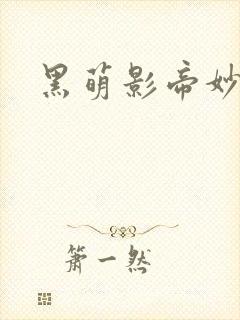 黑萌影帝妙
萧一然